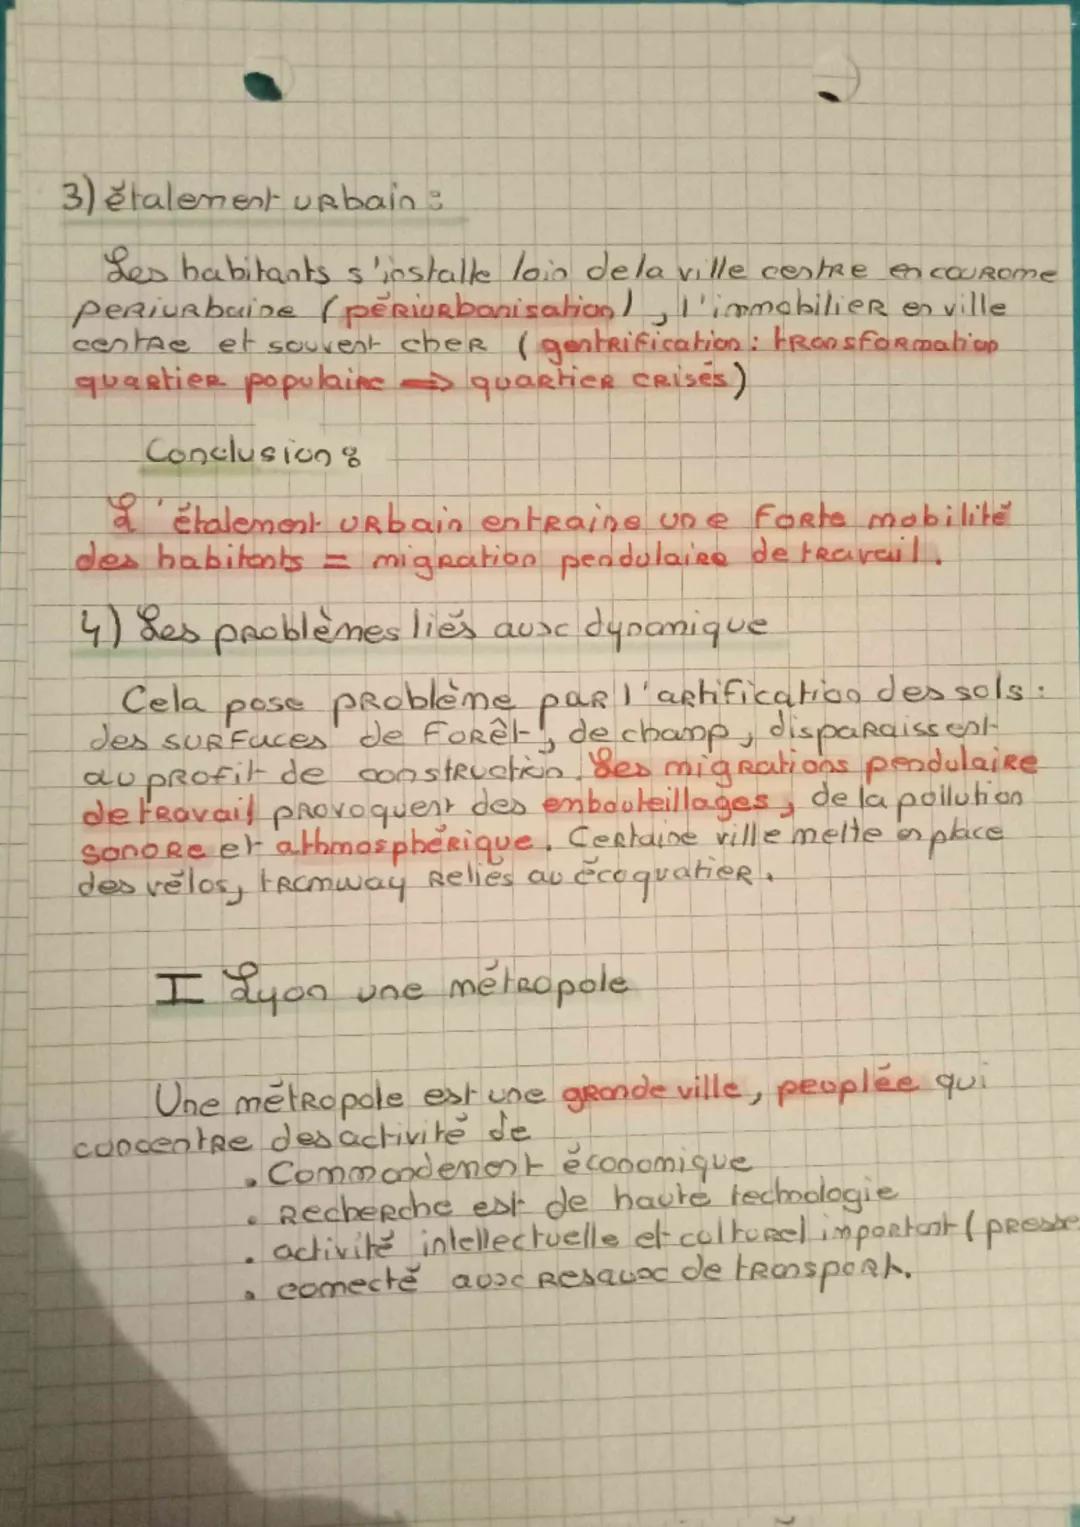 3) étalement urbain :
Les habitants s'installe loin de la ville centre en courome
periurbaine (périurbanisation), l'immobilier en ville
centre et souvent cher (gentrification : transformation
quartier populaire => quartier crisés)
Conclusion :
L'étalement urbain entraine une forte mobilité
des habitants = migration pendulaire de travail.
4) Les problèmes liés aux dynamique
Cela pose problème par l'artification des sols :
des surfaces de forêt, de champ, disparaissent
au profit de construction. Les migrations pendulaire
de travail provoquent des embouteillages, de la pollution
sonore et athmosphérique. Certaine ville mette en place
des vélos, tramway reliés au écoquatier.
I Lyon une métropole
Une métropole est une grande ville, peuplée qui
concentre des activité de
. Commandement économique
. Recherche est de haute technologie
. activité intellectuelle et culturel important (presse
. connecté aux resaux de transport.